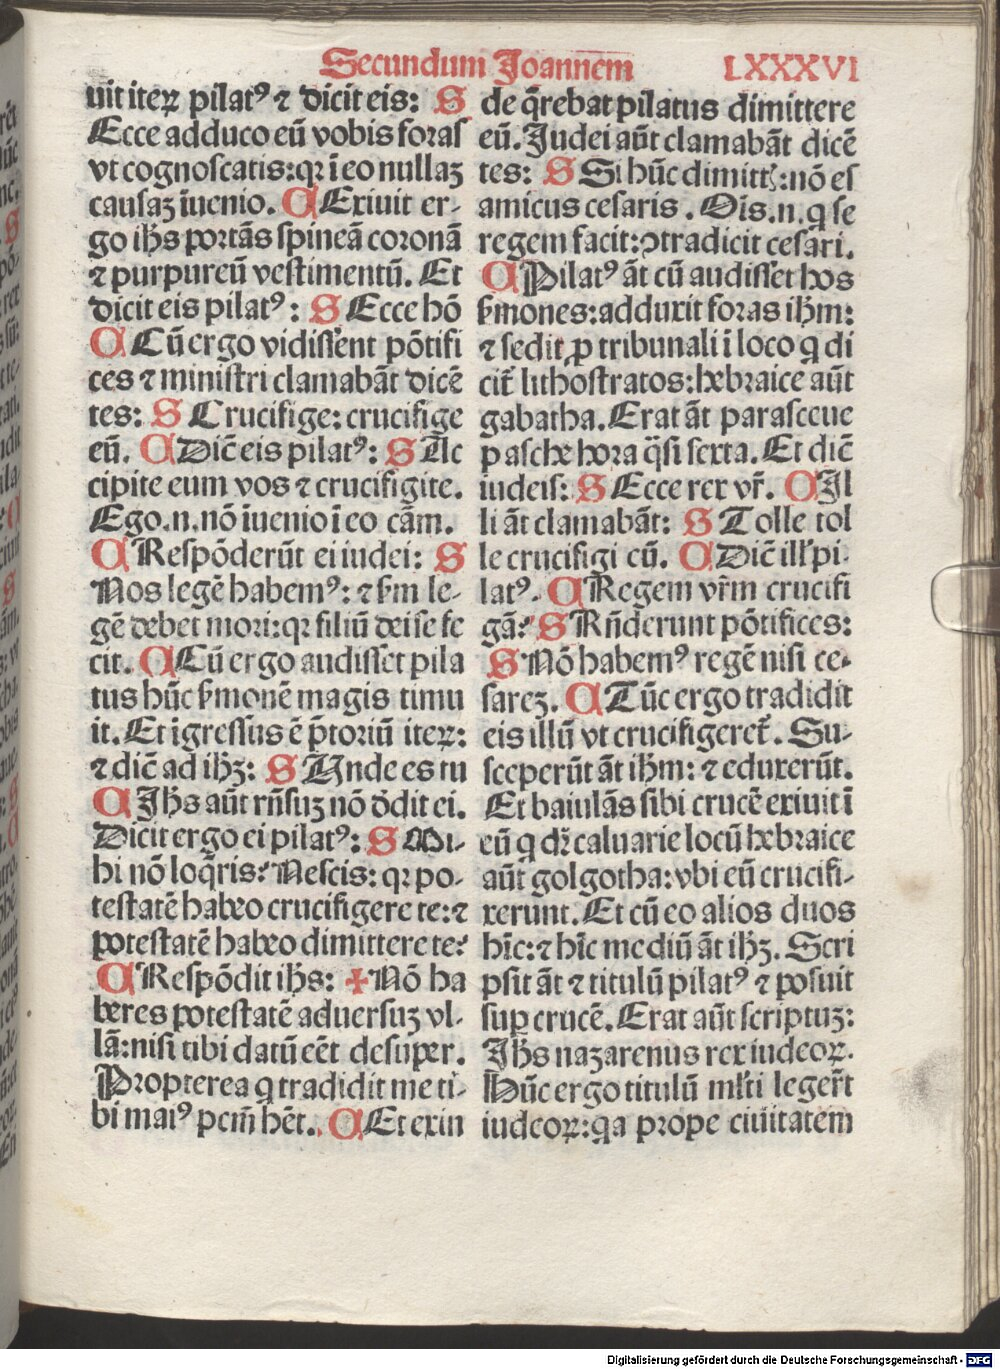 Secundum Joannem LXXXVI
uit iteꝝ pilatꝰ ⁊ dicit eis: S
Ecce adduco eū vobis foras
vt cognoscatis: qꝛ ī eo nullaꝫ
causaꝫ īuenio. C Exiuit er-
go ihs portās spineā coronā
⁊ purpureū vestimentū. Et
dicit eis pilatꝰ: S Ecce hō
C Cū ergo vidissēt pōtifi
ces ⁊ ministri clamabāt dicē
tes: S Crucifige: crucifige
eū. C Dic̄ eis pilatꝰ: S Ac
cipite eum vos ⁊ crucifigite.
Ego.n.nō īuenio ī eo cām.
C Respōderūt ei iudei: S
Nos legē habemꝰ: ⁊ ẜm le-
gē debet mori: qꝛ filiū dei se fe
cit. C Cū ergo audisset pila
tus hūc ẜmonē magis timu
it. Et īgressus ē p̄toriū iteꝝ:
⁊ dic̄ ad ihꝫ: S Unde es tu
C Jhs aūt rn̄suꝫ nō dēdit ei.
Dicit ergo ei pilatꝰ: S Mi-
hi nō loq̄ris? Nescis: qꝛ po-
testatē habeo crucifigere te: ⁊
potestatē habeo dimittere te?
C Respōdit ihs: + Nō ha
beres potestatē aduersuꝫ vl-
lā: nisi tibi datū eēt desuper.
Propterea q tradidit me ti-
bi maiꝰ pcm̄ hēt. C Et exin
de q̄rebat pilatus dimittere
eū. Judei aūt clamabāt dicē
tes: S Si hūc dimittꝭ: nō es
amicus cesaris. Oīs.n.q se
regem facit: ↄtradicit cesari.
C Pilatꝰ āt cū audisset hos
ẜmones: adduxit foras ihm:
⁊ sedit ꝓ tribunali ī loco q di
cit̄ lithostratos: hebraice aūt
gabatha. Erat āt parasceue
pasche hora q̄si sexta. Et dic̄
iudeis: S Ecce rex vr̄. C Il
li āt clamabāt: S Tolle tol
le crucifigi eū. C Dic̄ illꝭ pi-
latꝰ. C Regem vr̄m crucifi
gā? S Rn̄derunt pōtifices:
S Nō habemꝰ regē nisi ce-
sareꝫ. C Tūc ergo tradidit
eis illū vt crucifigeret̄. Su-
sceperūt āt ihm: ⁊ eduxerūt.
Et baiulās sibi crucē exiuit ī
eū q dr̄ caluarie locū hebraice
aūt golgotha: vbi eū crucifi-
xerunt. Et cū eo alios duos
hīc: ⁊ hīc mediū āt ihꝫ. Scri
psit āt ⁊ titulū pilatꝰ ⁊ posuit
suꝑ crucē. Erat aūt scriptuꝫ:
Jhs nazarenus rex iudeoꝝ.
Hūc ergo titulū ml̄ti legerūt
iudeoꝝ: qa prope ciuitatem
Digitalisierung gefördert durch die Deutsche Forschungsgemeinschaft - DFG